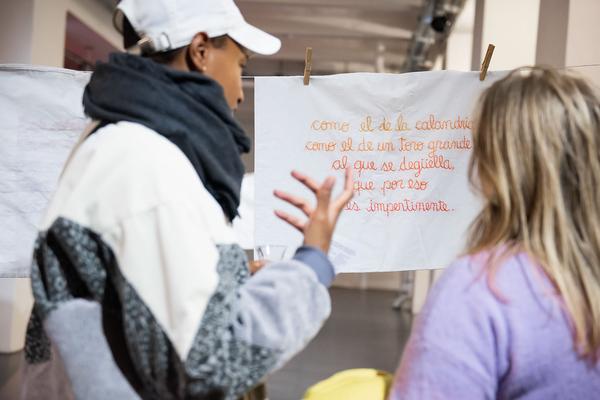 como el de la calandria
como el de un toro grande
al que se degüella,
que por eso
es impertinente..